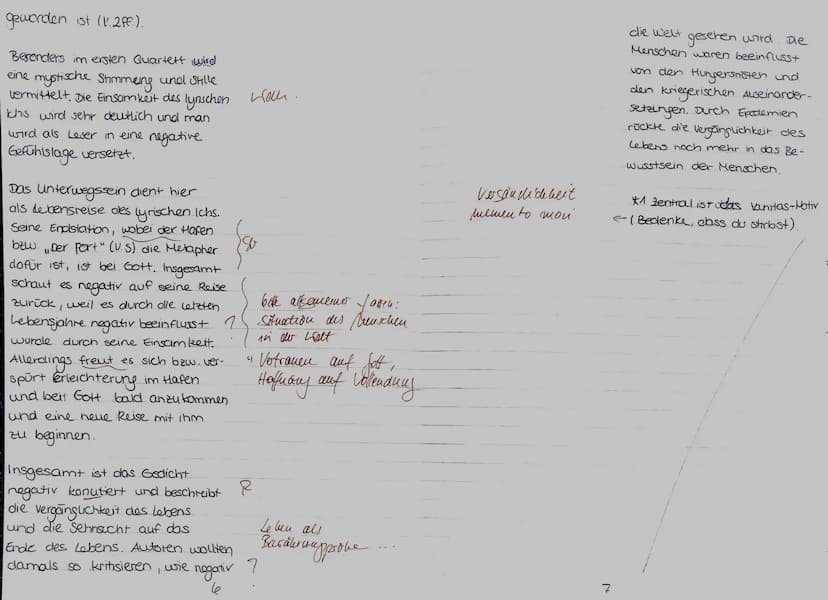 geworden ist (V.2ff.).
Besonders im ersten Quartett wird
eine mystische Stimmung und Stille
vermittelt. Die Einsamkeit des lyrischen
Ichs wird sehr deutlich und man
wird als Leser in eine negative
Gefühlslage versetzt.
Das Unterwegssein dient hier
als Lebensreise des lyrischen Ichs.
Seine Endstation, wobei der Hafen
bzw „Der Port" (V.5) die Metapher
dafür ist, ist bei Gott. Insgesamt
schaut es negativ auf seine Reise
zurück, weil es durch die letzten
Lebensjahre negativ beeinflusst
wurde durch seine Einsamkeit.
Allerdings freut es sich bzw. ver-
spürt Erleichterung im Hafen
und beit Gott bald anzukommen
und eine neue Reise mit ihm
zu beginnen.
Insgesamt ist das Gedicht
negativ konutiert und beschreibt
die Vergänglichkeit des Lebens
und die Sehnsucht auf das
Ende des Lebens. Autoren wollten
damals so kritisieren, wie negativ
6
?
allgemeiner
Situation des Menschen
in der Welt
Vertrauen auf Gott,
Hoffnung auf Vollendung
R
Leben als
Bewährungsprobe ...
?
die Welt gesehen wird. Die
Menschen waren beeinflusst
von den Hungersnöten und
den kriegerischen Auseinander-
setzungen. Durch Epidemien
rückte die Vergänglichkeit des
Lebens noch mehr in das Be-
wusstsein der Menschen.
*1 Zentral ist das Vanitas-Motiv
← (Bedenke, dass du stirbst).
memento mori
7